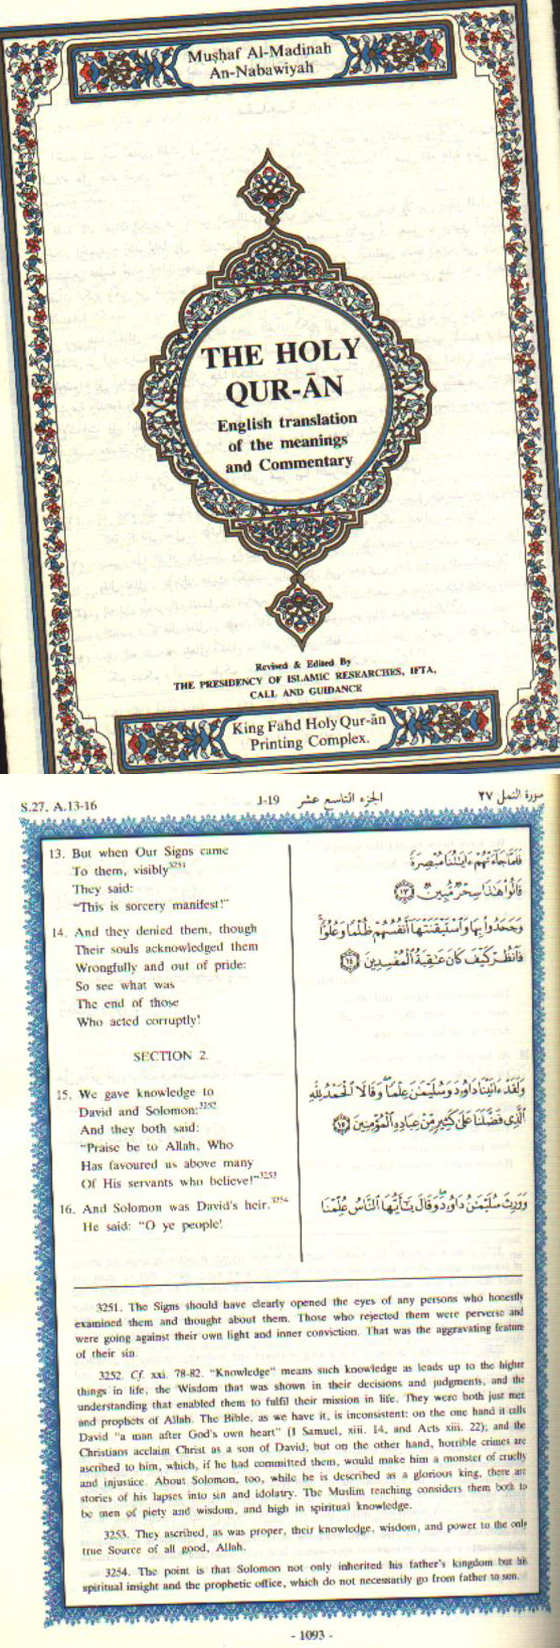 Muṣḥaf Al-Madinah
An-Nabawiyah
THE HOLY
QUR-ĀN
English translation
of the meanings
and Commentary
Revised & Edited By
THE PRESIDENCY OF ISLAMIC RESEARCHES, IFTA,
CALL AND GUIDANCE
King Fahd Holy Qur-ān
Printing Complex.
S.27, A.13-16
J-19 الجزء التاسع عشر
سورة النمل ٢٧
13. But when Our Signs came
To them, visibly³²⁵¹
They said:
"This is sorcery manifest!"
14. And they denied them, though
Their souls acknowledged them
Wrongfully and out of pride:
So see what was
The end of those
Who acted corruptly!
SECTION 2.
15. We gave knowledge to
David and Solomon:³²⁵²
And they both said:
"Praise be to Allah, Who
Has favoured us above many
Of His servants who believe!"³²⁵³
16. And Solomon was David's heir.³²⁵⁴
He said: "O ye people!
فَلَمَّا جَاءَتْهُمْ ءَايَٰتُنَا مُبْصِرَةً
قَالُوا۟ هَٰذَا سِحْرٌ مُّبِينٌ ١٣
وَجَحَدُوا۟ بِهَا وَٱسْتَيْقَنَتْهَآ أَنفُسُهُمْ ظُلْمًا وَعُلُوًّا
فَٱنظُرْ كَيْفَ كَانَ عَٰقِبَةُ ٱلْمُفْسِدِينَ ١٤
وَلَقَدْ ءَاتَيْنَا دَاوُۥدَ وَسُلَيْمَٰنَ عِلْمًا وَقَالَا ٱلْحَمْدُ لِلَّهِ
ٱلَّذِى فَضَّلَنَا عَلَىٰ كَثِيرٍ مِّنْ عِبَادِهِ ٱلْمُؤْمِنِينَ ١٥
وَوَرِثَ سُلَيْمَٰنُ دَاوُۥدَ وَقَالَ يَٰٓأَيُّهَا ٱلنَّاسُ عُلِّمْنَا
3251. The Signs should have clearly opened the eyes of any persons who honestly
examined them and thought about them. Those who rejected them were perverse and
were going against their own light and inner conviction. That was the aggravating feature
of their sin.
3252. Cf. xxi. 78-82. "Knowledge" means such knowledge as leads up to the higher
things in life, the Wisdom that was shown in their decisions and judgments, and the
understanding that enabled them to fulfil their mission in life. They were both just men
and prophets of Allah. The Bible, as we have it, is inconsistent: on the one hand it calls
David "a man after God's own heart" (I Samuel, xiii. 14, and Acts xiii. 22); and the
Christians acclaim Christ as a son of David; but on the other hand, horrible crimes are
ascribed to him, which, if he had committed them, would make him a monster of cruelty
and injustice. About Solomon, too, while he is described as a glorious king, there are
stories of his lapses into sin and idolatry. The Muslim teaching considers them both to
be men of piety and wisdom, and high in spiritual knowledge.
3253. They ascribed, as was proper, their knowledge, wisdom, and power to the only
true Source of all good, Allah.
3254. The point is that Solomon not only inherited his father's kingdom but his
spiritual insight and the prophetic office, which do not necessarily go from father to son.
- 1093 -